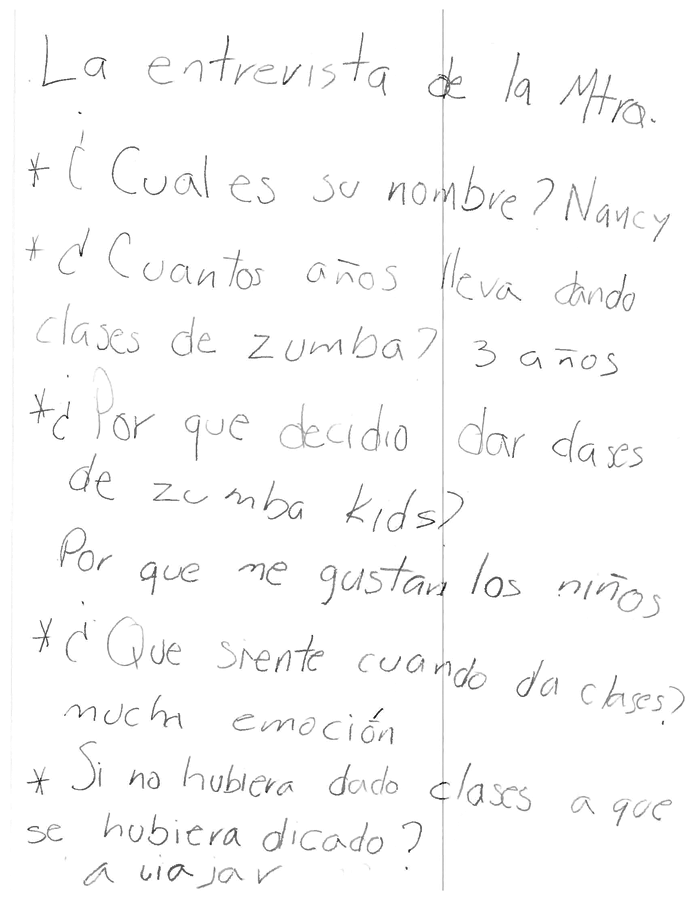 La entrevista de la Mtra.
* ¿Cual es su nombre? Nancy
* ¿Cuantos años lleva dando
clases de zumba? 3 años
*¿Por que decidio dar clases
de zumba kids?
Por que me gustan los niños
*¿Que siente cuando da clases?
mucha emoción
* Si no hubiera dado clases a que
se hubiera dicado?
a viajar